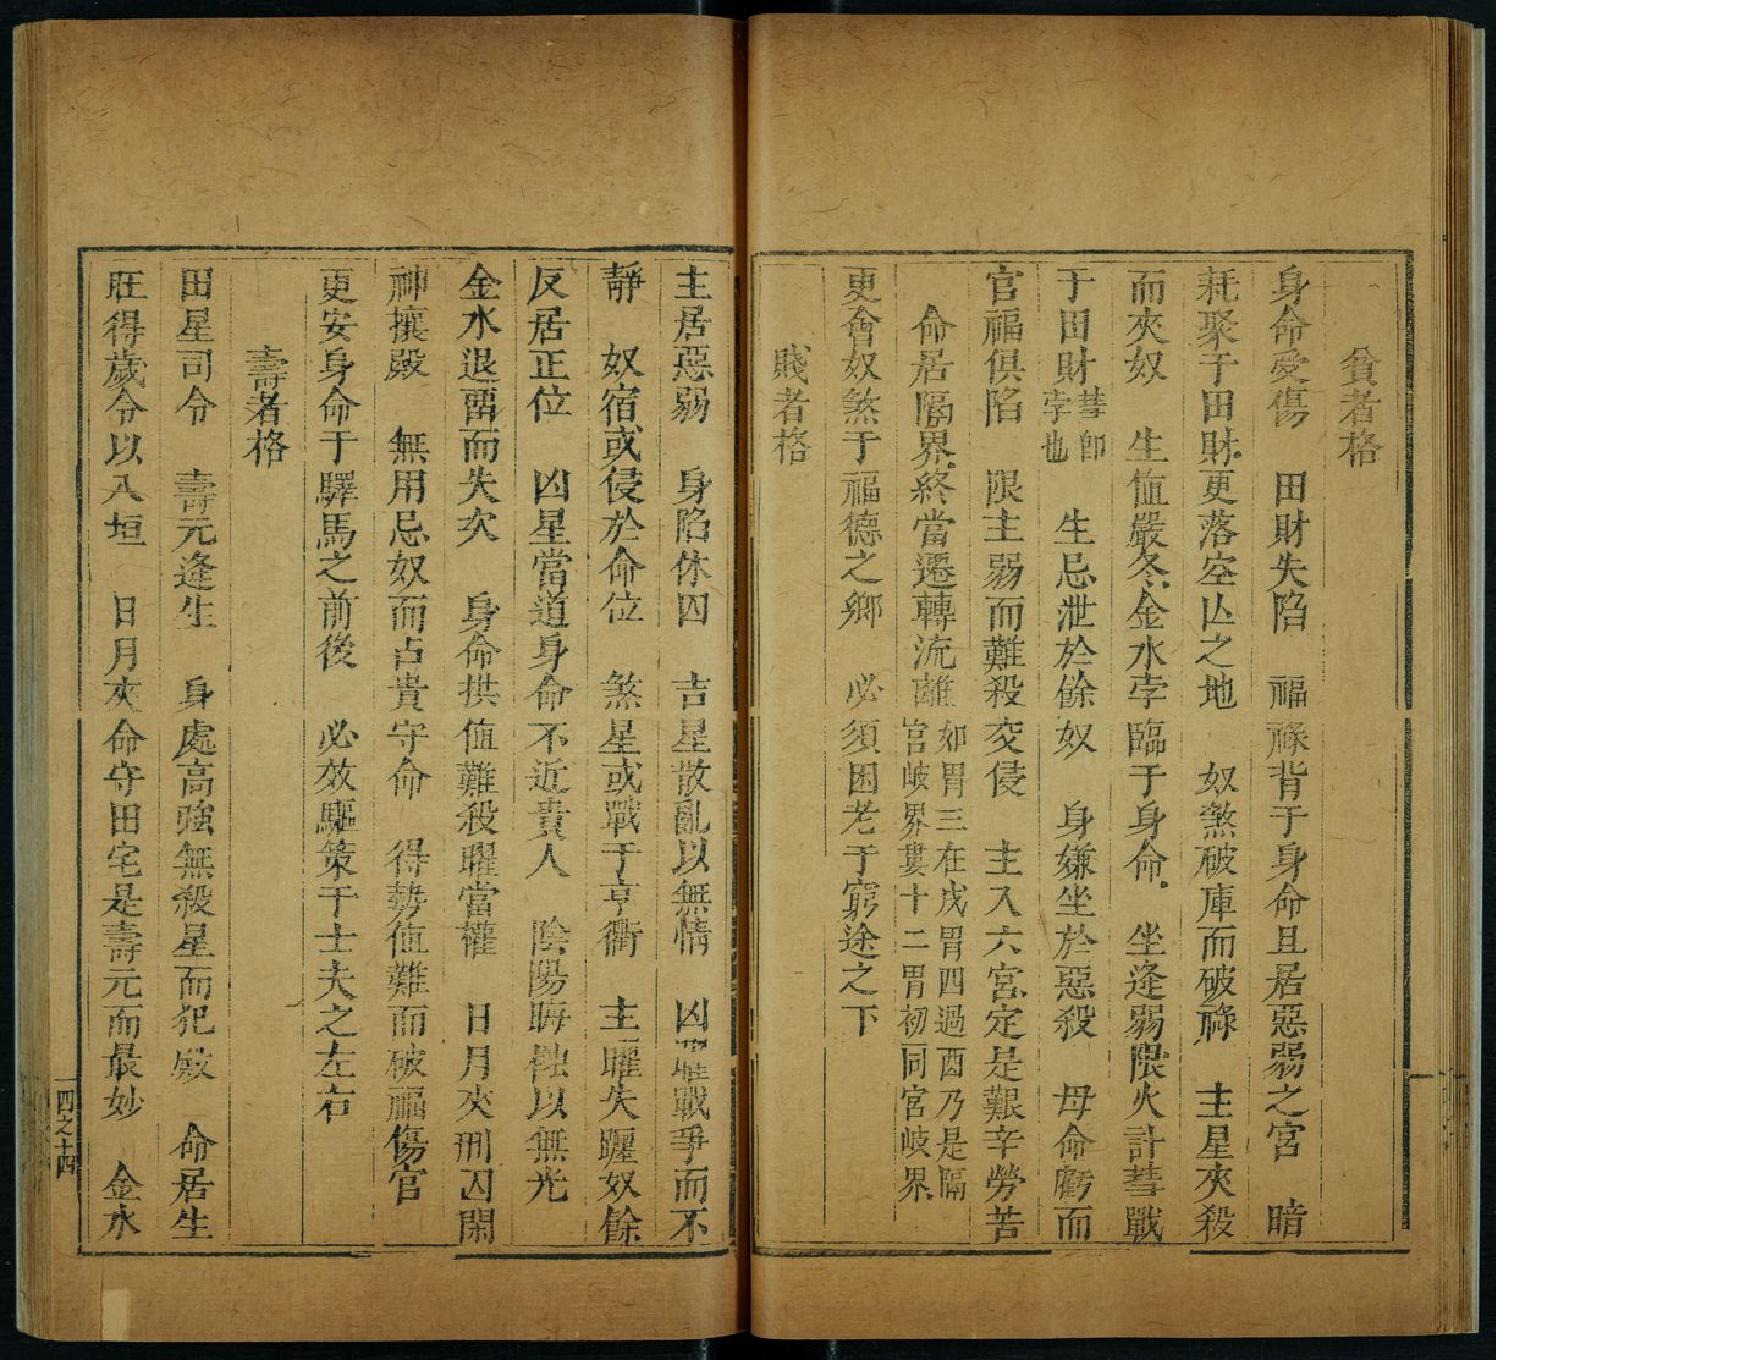 貧者格
身命受傷　田財失陷　福祿背于身命且居惡弱之宮　暗
耗聚于田財更落空亾之地　奴煞破庫而破祿　主星夾殺
而夾奴　生值嚴冬金水孛臨于身命　坐逢弱限火計彗戰
于田財彗即孛也　生忌泄於餘奴　身嫌坐於惡殺　母命虧而
官福俱陷　限主弱而難殺交侵　主入六宮定是艱辛勞苦
命居隔界終當遷轉流離如胃三在戌胃四過酉乃是隔宮岐界婁十二胃初同宮岐界
更會奴煞于福德之鄉　必須困老于窮途之下
賤者格
主居惡弱　身陷休囚　吉星散亂以無情　凶曜戰爭而不
靜　奴宿或侵於命位　煞星或戰于亨衢　主曜失躔奴餘
反居正位　凶星當道身命不近貴人　陰陽晦蝕以無光
金水退畱而失次　身命拱值難殺曜當權　日月夾刑囚閑
神攘殿　無用忌奴而占貴守命　得勢值難而破福傷官
更安身命于驛馬之前後　必效驅策于士夫之左右
壽者格
田星司令　壽元逢生　身處高強無殺星而犯殿　命居生
旺得歲令以入垣　日月夾命守田宅是壽元而最妙　金水
四之十四